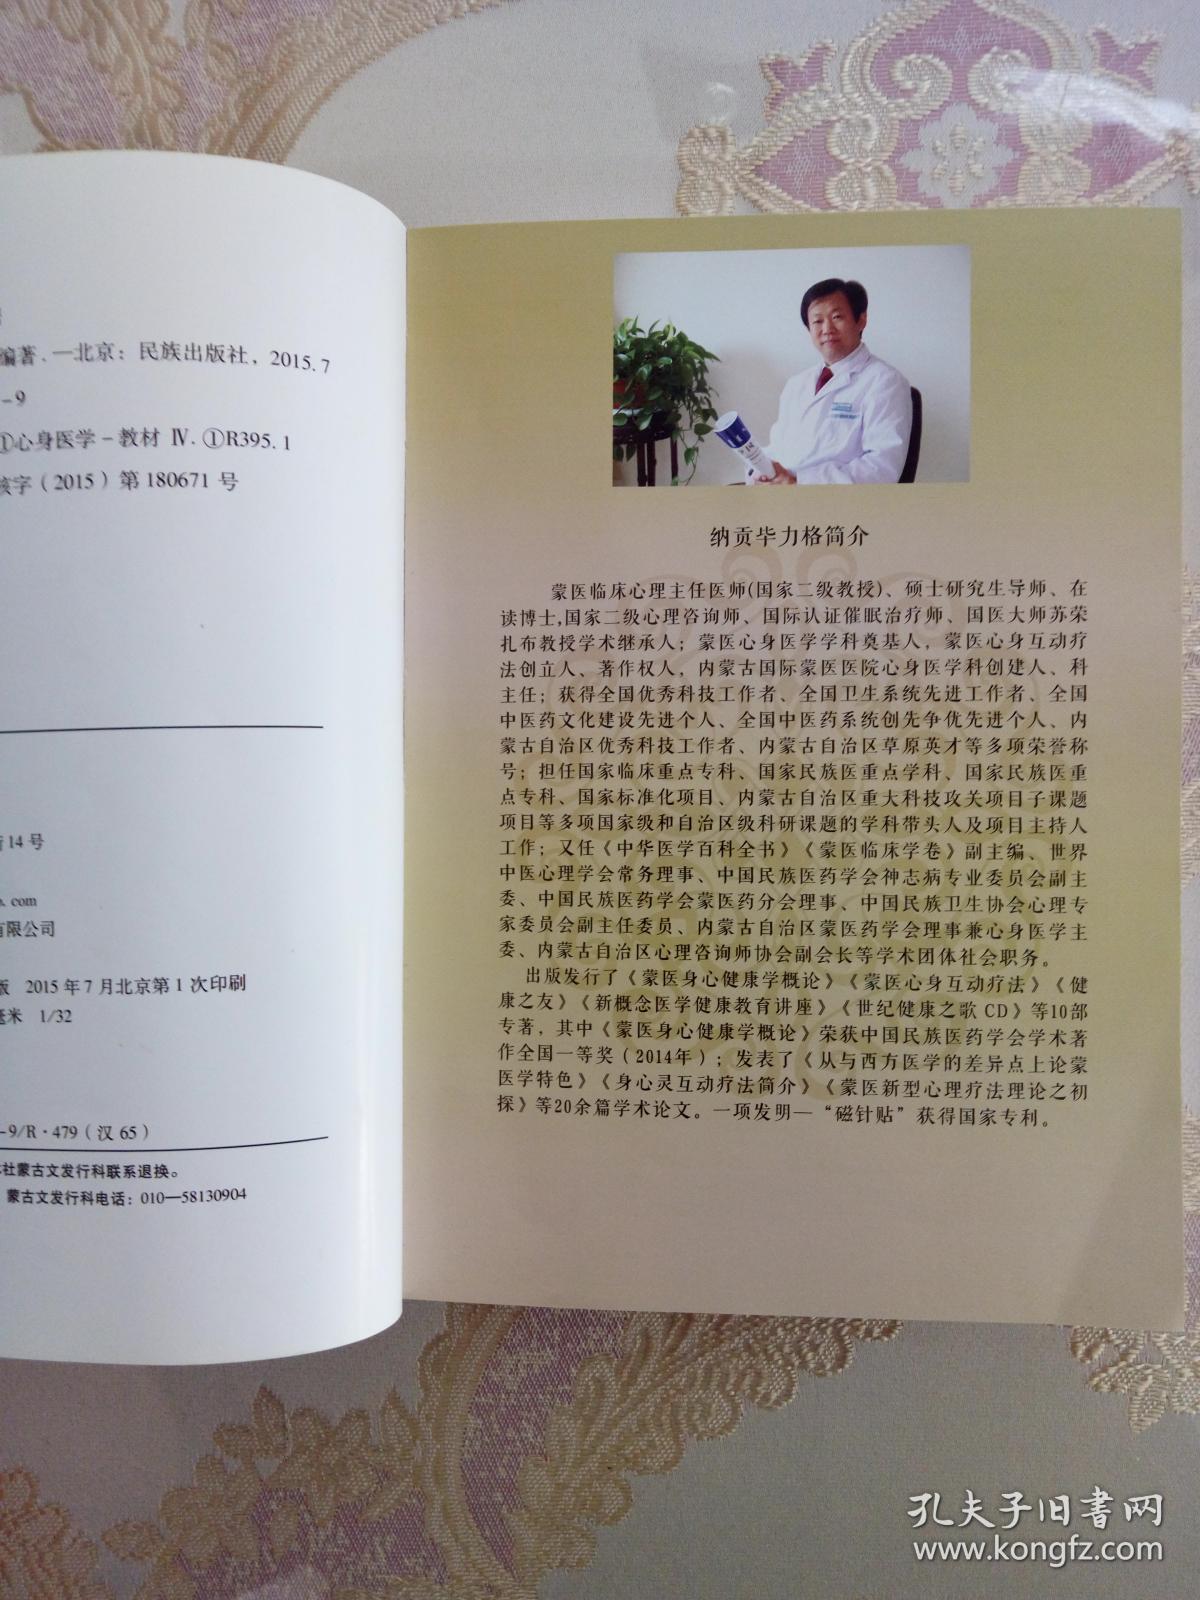 编著.—北京：民族出版社，2015.7
-9
①心身医学－教材 Ⅳ.①R395.1
核字（2015）第180671号
街14号
o.com
有限公司
版 2015年7月北京第1次印刷
毫米 1/32
-9/R·479（汉65）
本社蒙古文发行科联系退换。
蒙古文发行科电话：010—58130904
纳贡毕力格简介
蒙医临床心理主任医师(国家二级教授)、硕士研究生导师、在
读博士,国家二级心理咨询师、国际认证催眠治疗师、国医大师苏荣
扎布教授学术继承人；蒙医心身医学学科奠基人，蒙医心身互动疗
法创立人、著作权人，内蒙古国际蒙医医院心身医学科创建人、科
主任；获得全国优秀科技工作者、全国卫生系统先进工作者、全国
中医药文化建设先进个人、全国中医药系统创先争优先进个人、内
蒙古自治区优秀科技工作者、内蒙古自治区草原英才等多项荣誉称
号；担任国家临床重点专科、国家民族医重点学科、国家民族医重
点专科、国家标准化项目、内蒙古自治区重大科技攻关项目子课题
项目等多项国家级和自治区级科研课题的学科带头人及项目主持人
工作；又任《中华医学百科全书》《蒙医临床学卷》副主编、世界
中医心理学会常务理事、中国民族医药学会神志病专业委员会副主
委、中国民族医药学会蒙医药分会理事、中国民族卫生协会心理专
家委员会副主任委员、内蒙古自治区蒙医药学会理事兼心身医学主
委、内蒙古自治区心理咨询师协会副会长等学术团体社会职务。
出版发行了《蒙医身心健康学概论》《蒙医心身互动疗法》《健
康之友》《新概念医学健康教育讲座》《世纪健康之歌CD》等10部
专著，其中《蒙医身心健康学概论》荣获中国民族医药学会学术著
作全国一等奖（2014年）；发表了《从与西方医学的差异点上论蒙
医学特色》《身心灵互动疗法简介》《蒙医新型心理疗法理论之初
探》等20余篇学术论文。一项发明—“磁针贴”获得国家专利。
孔夫子旧书网
www.kongfz.com